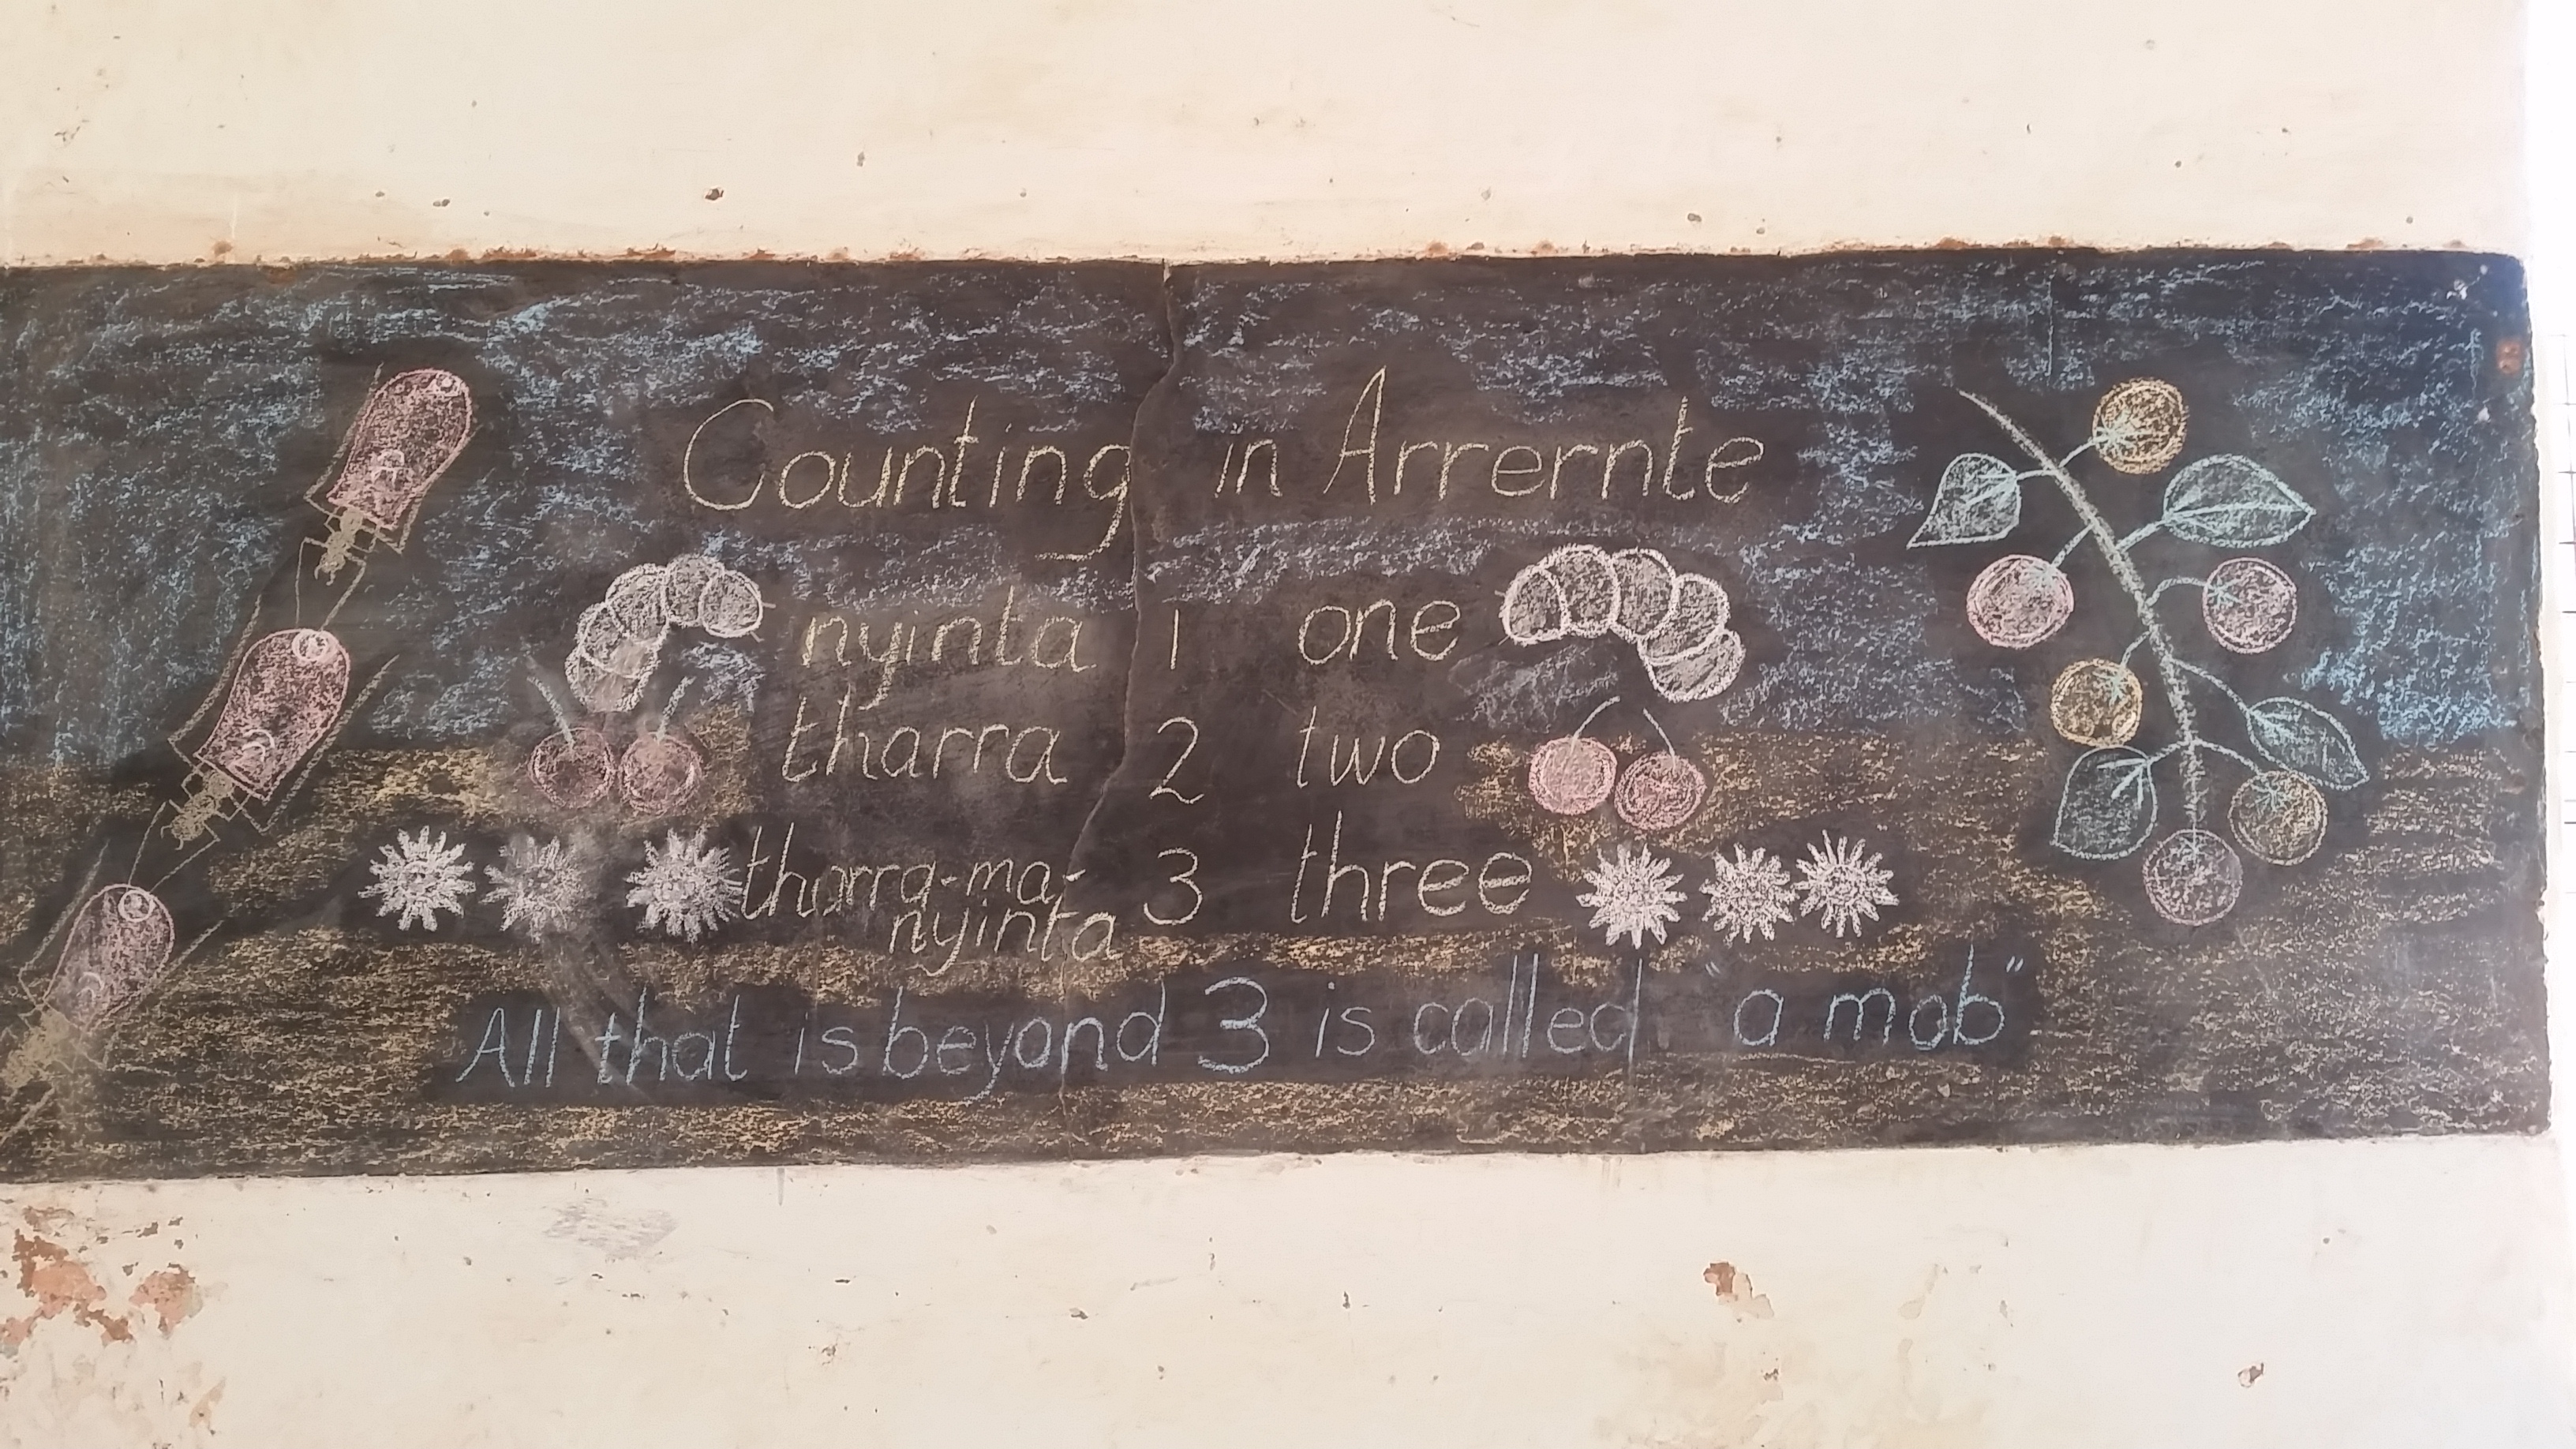 Counting in Arrernte
nyinta 1 one
tharra 2 two
tharra-ma-
nyinta 3 three
All that is beyond 3 is called "a mob"